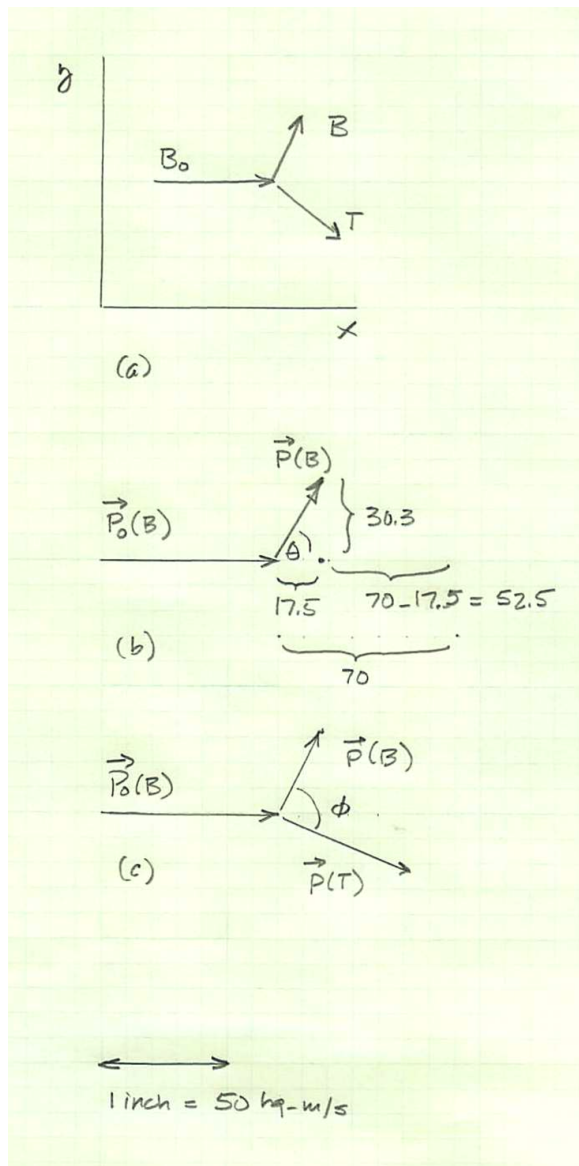 y
B
B₀
T
x
(a)
P⃗(B)
P⃗₀(B)
30.3
θ
17.5
70-17.5 = 52.5
(b)
70
P⃗₀(B)
P⃗(B)
ϕ
(c)
P⃗(T)
1 inch = 50 kg-m/s